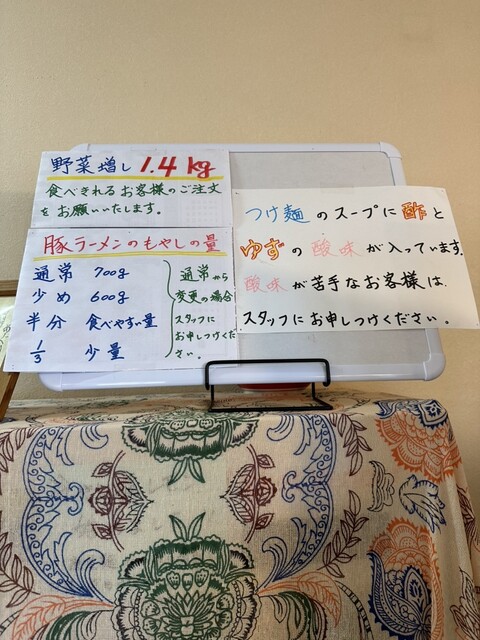 野菜増し 1.4kg
食べきれるお客様のご注文
をお願いいたします。
豚ラーメンのもやしの量
通常 700g
少め 600g
半分 食べやすい量
1/3 少量
通常から
変更の場合
スタッフに
お申しつけくだ
さい。
つけ麺のスープに酢と
ゆずの酸味が入っています。
酸味が苦手なお客様は
スタッフにお申しつけください。